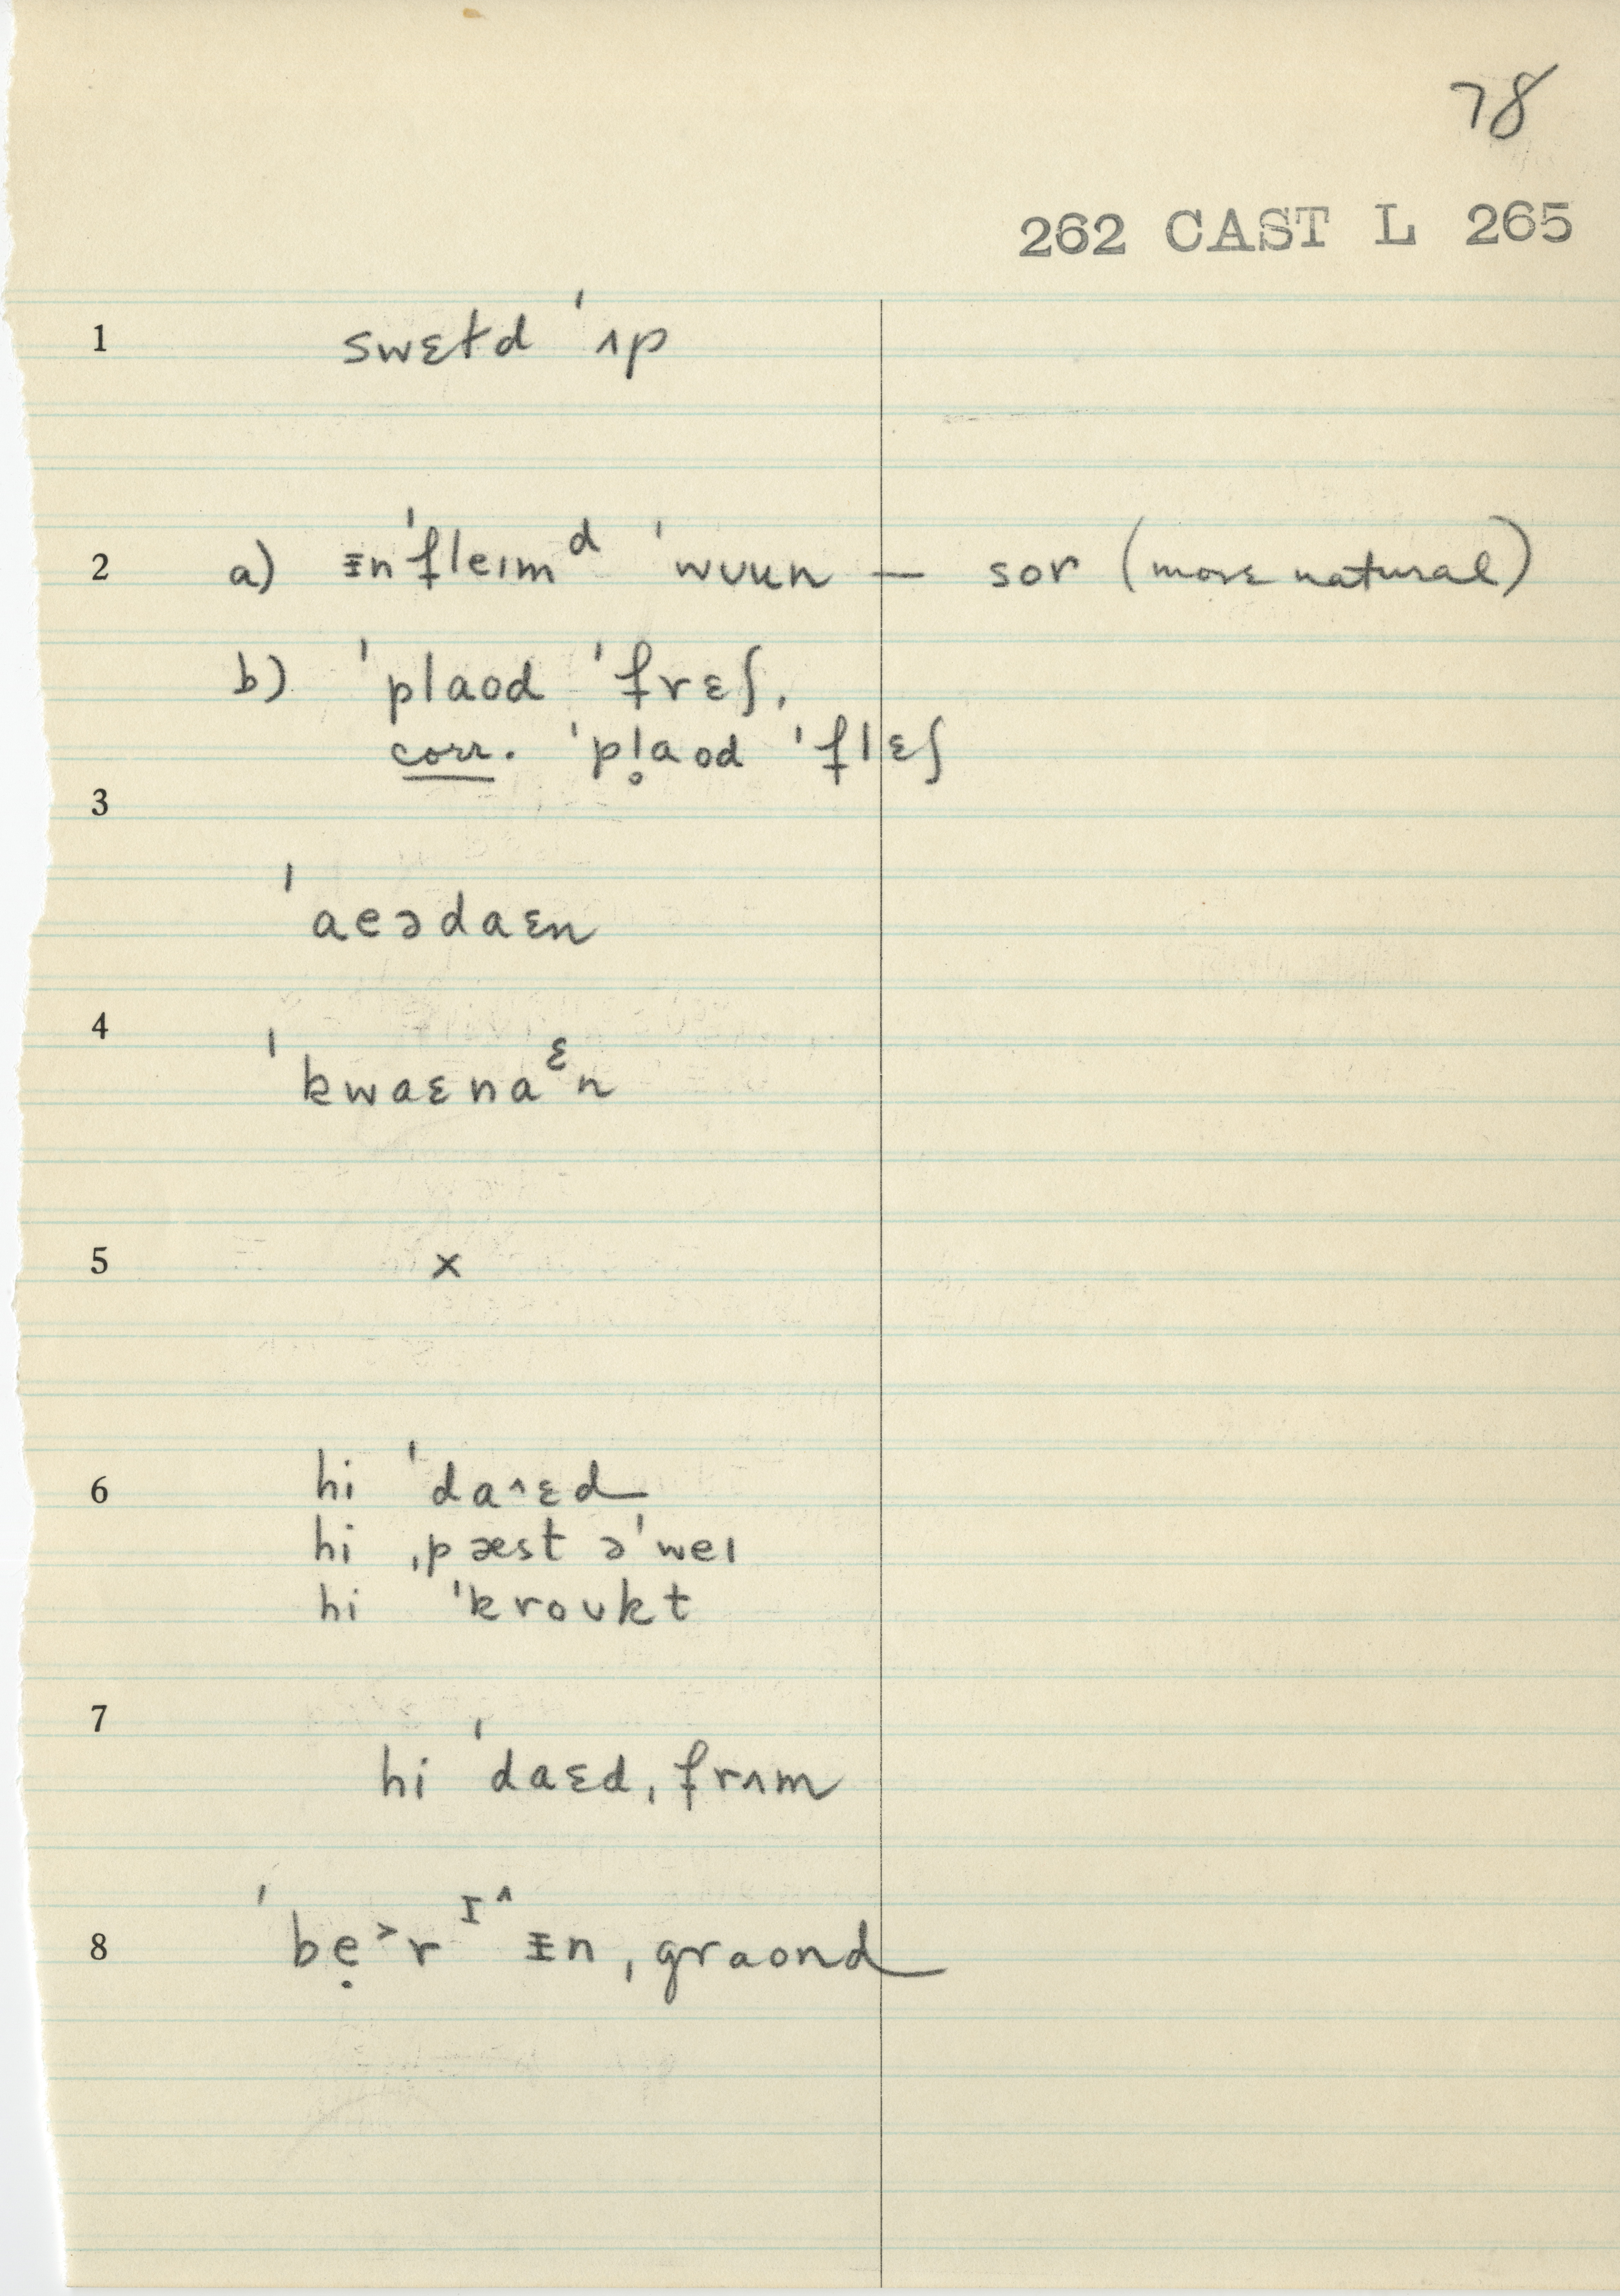 78
262 CAST L 265
1 swɛɫd ˈʌp
2 a) ᵻnˈfleɪmᵈ ˈwuun — sor (more natural)
b) ˈplaod ˈfrɛʃ,
corr. ˈpl̥aod ˈflɛʃ
3
ˈaeədaɛn
4
ˈkwaɛnaᵋn
5 x
6 hi ˈda^ɛd
hi ˌpæst əˈweɪ
hi ˈkroʊkt
7
hi ˈdaɛd ˌfrʌm
8 ˈbẹ˃rᶦ^ ᵻn ˌgraond